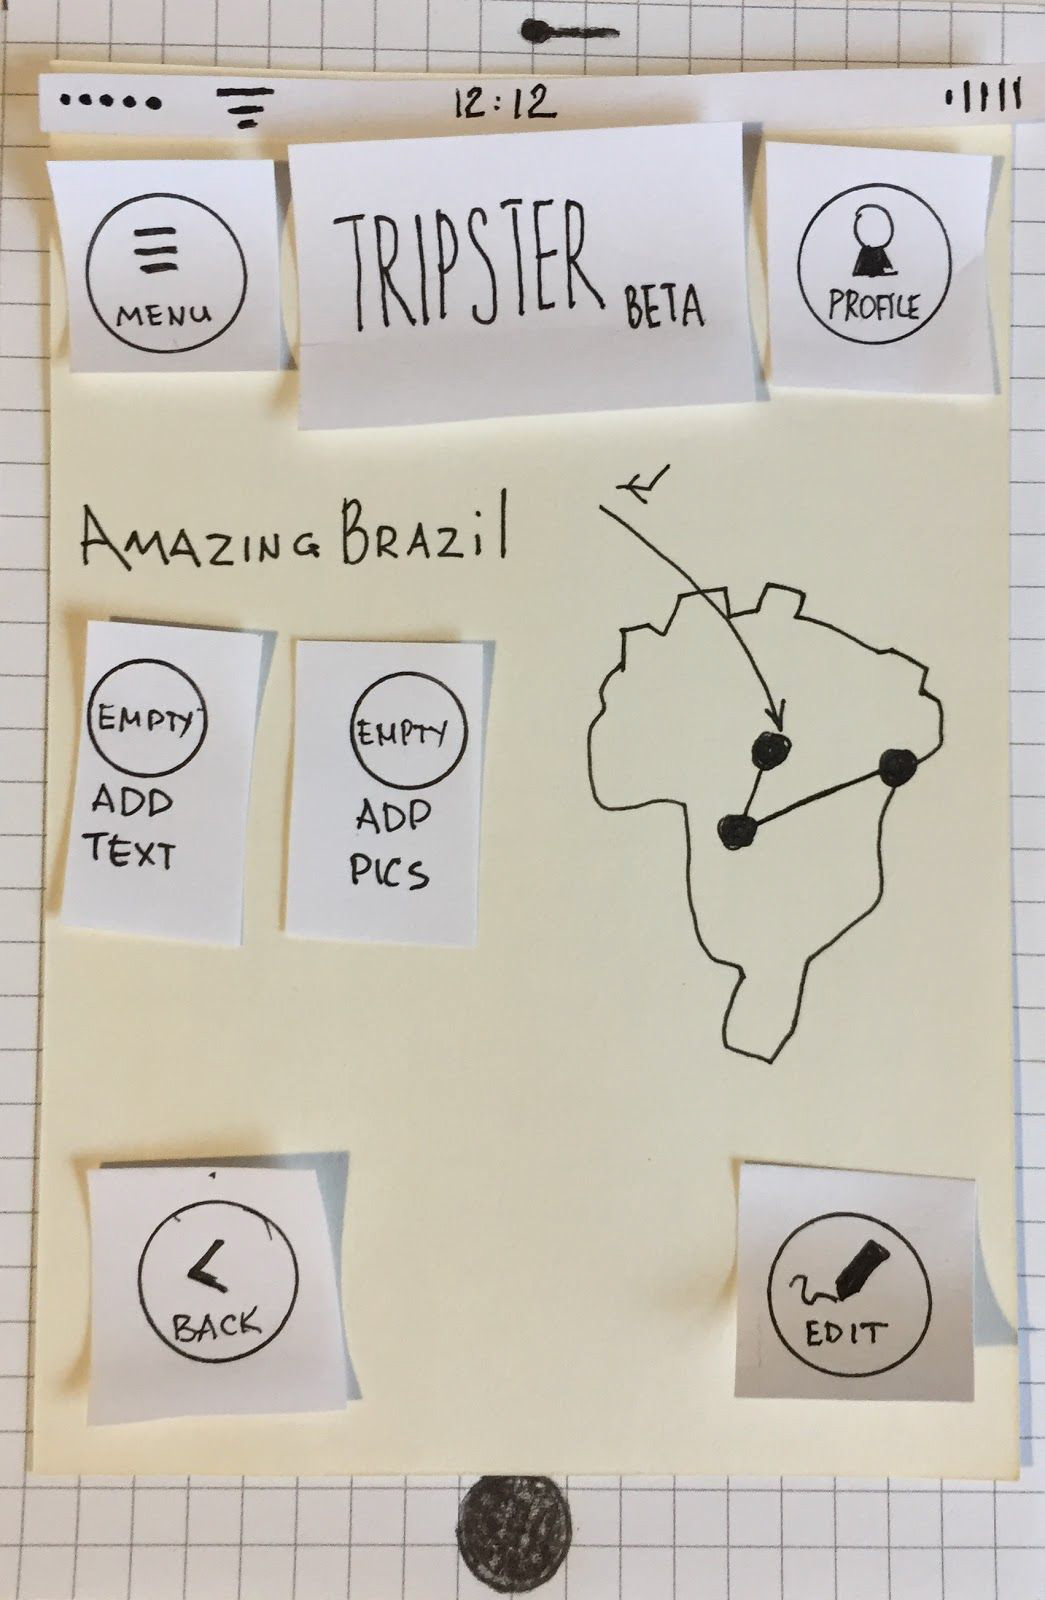 12:12
MENU
TRIPSTER BETA
PROFILE
AMAZING BRAZIL
EMPTY
ADD
TEXT
EMPTY
ADD
PICS
BACK
EDIT